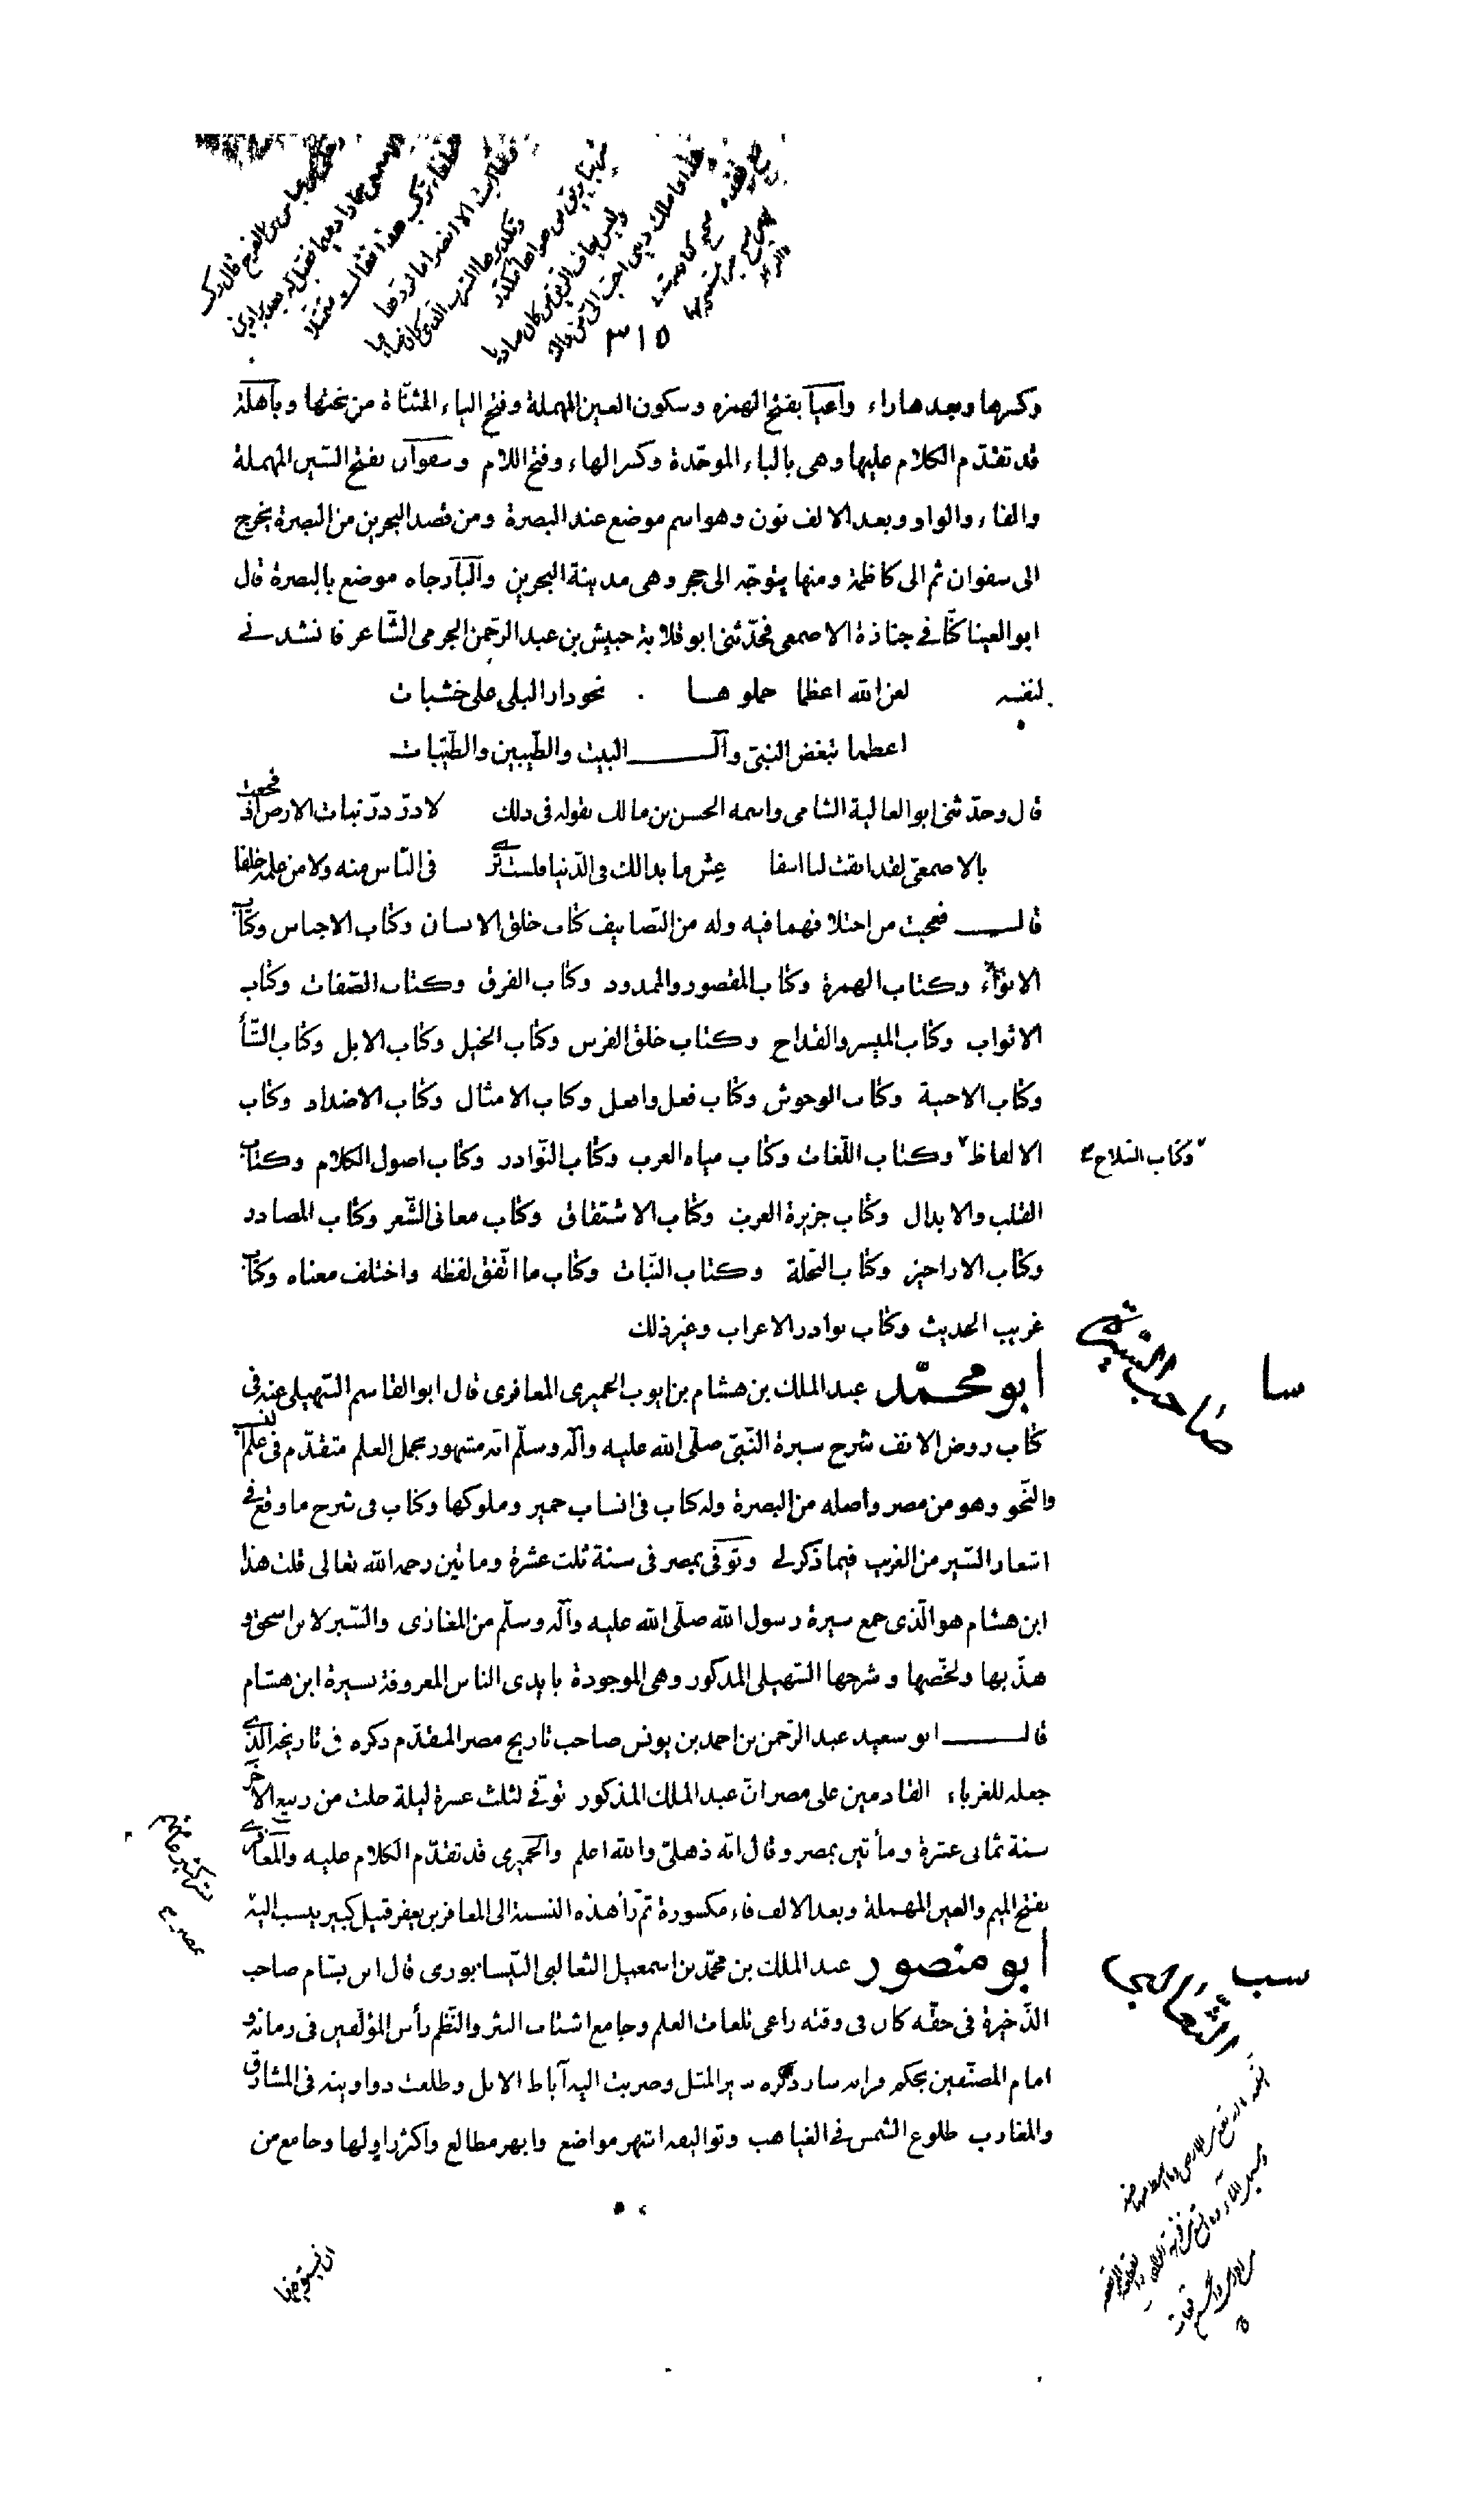 ٣١٥
وكسرها وبعدها راء واعيا بفتح الهمزه وسكون العين المهملة وفتح الياء المثنّاة من تحتها وباهلة
قد تقدّم الكلام عليها وهى بالباء الموحّدة وكسر الهاء وفتح اللام وسفوان بفتح السّين المهملة
والفاء والواو وبعد الالف نون وهو اسم موضع عند البصرة ومن قصد البحرين من البصرة يخرج
الى سفوان ثم الى كاظمة ومنها يتوجّه الى هجر وهى مدينة البحرين والبادجاه موضع بالبصرة قال
ابو العينا كنّا فى جنازة الاصمعى فحدّثنى ابو قلابة حبيش بن عبد الرحمن الجرمى الشّاعر فانشدنے
لنفسه لعن الله اعظما حملوها نحو دار البلى على خشبات
اعظما تبغض النبىّ وآلـ ـالبيت والطّيبين والطّيّبات
قال وحدّثنى ابو العالية الشامى واسمه الحسن بن مالك بقوله فى ذلك لا درّ درّ نبات الارض اذ فجعت
بالاصمعىّ لقد ابقت لنا اسفا عش ما بدا لك فى الدّنيا فلست ترے فى النّاس منه ولا من علمه خلفا
قال فعجبت من اختلافهما فيه وله من التّصانيف كتاب خلق الانسان وكتاب الاجناس وكتاب
الانوآء وكتاب الهمزة وكتاب المقصور والممدود وكتاب الفرق وكتاب الصّفات وكتاب
الاثواب وكتاب الميسر والقداح وكتاب خلق الفرس وكتاب الخيل وكتاب الابل وكتاب الشّأ
وكتاب الاخبية وكتاب الوحوش وكتاب فعل وافعل وكتاب الامثال وكتاب الاضداد وكتاب
الالفاظ وكتاب اللّغات وكتاب مياه العرب وكتاب النّوادر وكتاب اصول الكلام وكتاب
وكتاب السّلاح
القلب والابدال وكتاب جزيرة العرب وكتاب الاشتقاق وكتاب معانى الشّعر وكتاب المصادر
وكتاب الاراجيز وكتاب النّخلة وكتاب النّبات وكتاب ما اتّفق لفظه واختلف معناه وكتاب
غريب الحديث وكتاب نوادر الاعراب وغير ذلك
سا
صاحب السّيرة
ابو محمّد عبد الملك بن هشام بن ايوب الحميرى المعافرى قال ابو القاسم السّهيلى عنه فى
كتاب روض الانف شرح سيرة النّبىّ صلّى الله عليه وآله وسلّم انّه مشهور بحمل العلم متقدّم فى علم النسب
والنّحو وهو من مصر واصله من البصرة وله كتاب فى انساب حمير وملوكها وكتاب فى شرح ما وقع فے
اشعار السّير من الغريب فيما ذكر لے وتوفى بمصر فى سنة ثلث عشرة ومائتين رحمه الله تعالى قلت هذا
ابن هشام هو الّذى جمع سيرة رسول الله صلّى الله عليه وآله وسلّم من المغازى والسّير لابن اسحق و
هذّبها ولخّصها وشرحها السّهيلى المذكور وهى الموجودة بايدى الناس المعروفة بسيرة ابن هشام
قال ابو سعيد عبد الرّحمن بن احمد بن يونس صاحب تاريخ مصر المقدّم ذكره فى تاريخه الّذے
جعله للغرباء القادمين على مصر انّ عبد الملك المذكور توفّے لثلث عشرة ليلة خلت من ربيع الآخر
سنة ثمانى عشرة ومأتين بمصر وقال انّه ذهلىّ والله اعلم والحميرى قد تقدّم الكلام عليه والمعافرے
بفتح الميم والعين المهملة وبعد الالف فاء مكسورة ثمّ رأ هذه النسبة الى المعافر بن يعفر قبيل كبير ينسب اليه
سب
الثّعالبى
ابو منصور عبد الملك بن محمّد بن اسمعيل الثعالبى النّيسابورى قال ابن بسّام صاحب
الذّخيرة فى حقّه كان فى وقته راعى تلعات العلم وجامع اشتات النثر والنّظم رأس المؤلّفين فى زمانه و
امام المصنّفين بحكم قرانه سار ذكره سير المثل وضربت اليه آباط الابل وطلعت دواوينه فى المشارق
والمغارب طلوع الشّمس فے الغياهب وتواليفه اشهر مواضع وابهر مطالع واكثر راو لها وجامع من
ان يستوفيها